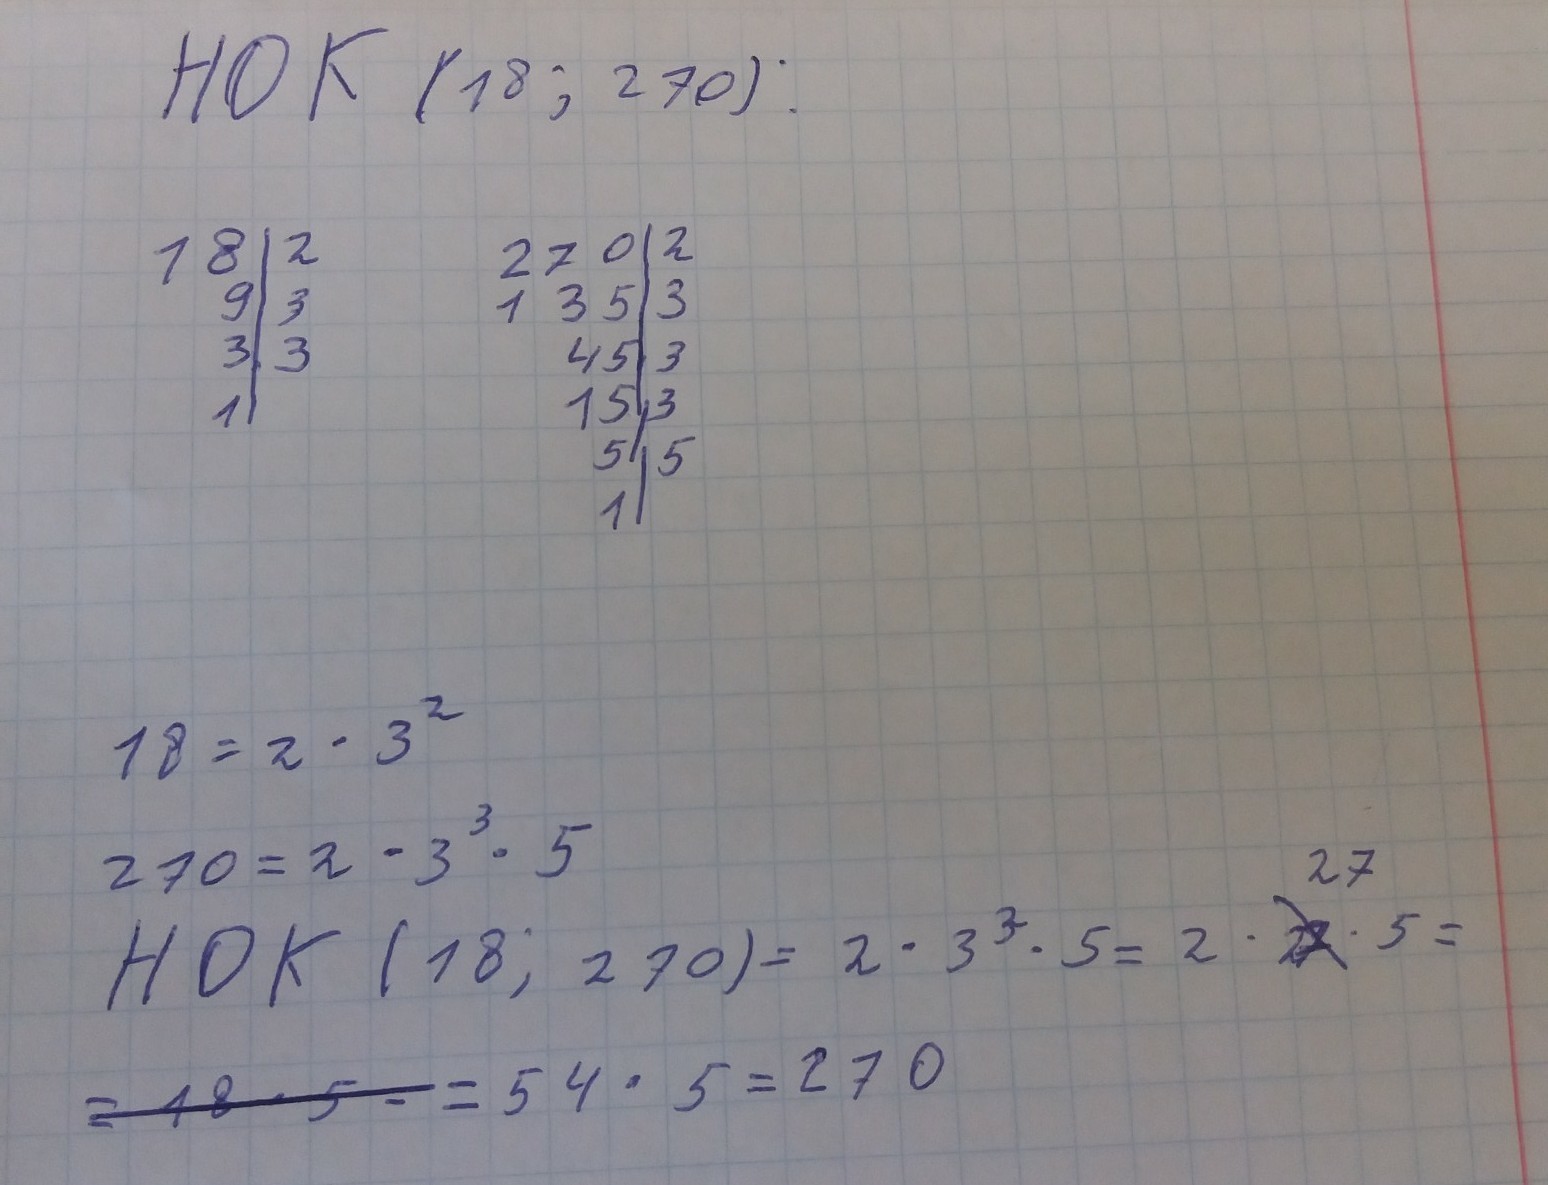 НОК (18; 270):
18 | 2
9 | 3
3 | 3
1 |
270 | 2
135 | 3
45 | 3
15 | 3
5 | 5
1 |
18 = 2 · 3²
270 = 2 · 3³ · 5
НОК (18; 270) = 2 · 3³ · 5 = 2 · 27 · 5 =
= 18 · 5 = = 54 · 5 = 270